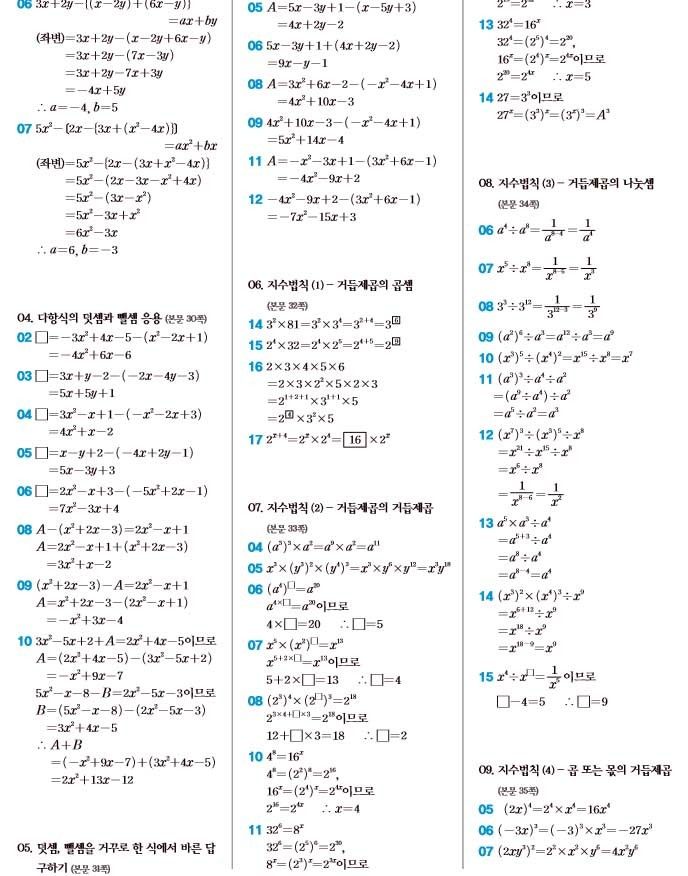 06 3x+2y-{(x-2y)+(6x-y)}
=ax+by
(좌변)=3x+2y-(x-2y+6x-y)
=3x+2y-(7x-3y)
=3x+2y-7x+3y
=-4x+5y
∴ a=-4, b=5
07 5x²-[2x-{3x+(x²-4x)}]
=ax²+bx
(좌변)=5x²-{2x-(3x+x²-4x)}
=5x²-(2x-3x-x²+4x)
=5x²-(3x-x²)
=5x²-3x+x²
=6x²-3x
∴ a=6, b=-3
04. 다항식의 덧셈과 뺄셈 응용 (본문 30쪽)
02 □=-3x²+4x-5-(x²-2x+1)
=-4x²+6x-6
03 □=3x+y-2-(-2x-4y-3)
=5x+5y+1
04 □=3x²-x+1-(-x²-2x+3)
=4x²+x-2
05 □=x-y+2-(-4x+2y-1)
=5x-3y+3
06 □=2x²-x+3-(-5x²+2x-1)
=7x²-3x+4
08 A-(x²+2x-3)=2x²-x+1
A=2x²-x+1+(x²+2x-3)
=3x²+x-2
09 (x²+2x-3)-A=2x²-x+1
A=x²+2x-3-(2x²-x+1)
=-x²+3x-4
10 3x²-5x+2+A=2x²+4x-5이므로
A=(2x²+4x-5)-(3x²-5x+2)
=-x²+9x-7
5x²-x-8-B=2x²-5x-3이므로
B=(5x²-x-8)-(2x²-5x-3)
=3x²+4x-5
∴ A+B
=(-x²+9x-7)+(3x²+4x-5)
=2x²+13x-12
05. 덧셈, 뺄셈을 거꾸로 한 식에서 바른 답
구하기 (본문 31쪽)
05 A=5x-3y+1-(x-5y+3)
=4x+2y-2
06 5x-3y+1+(4x+2y-2)
=9x-y-1
08 A=3x²+6x-2-(-x²-4x+1)
=4x²+10x-3
09 4x²+10x-3-(-x²-4x+1)
=5x²+14x-4
11 A=-x²-3x+1-(3x²+6x-1)
=-4x²-9x+2
12 -4x²-9x+2-(3x²+6x-1)
=-7x²-15x+3
06. 지수법칙 (1) - 거듭제곱의 곱셈
(본문 32쪽)
14 3²×81=3²×3⁴=3²⁺⁴=3⁶
15 2⁴×32=2⁴×2⁵=2⁴⁺⁵=2⁹
16 2×3×4×5×6
=2×3×2²×5×2×3
=2¹⁺²⁺¹×3¹⁺¹×5
=2⁴×3²×5
17 2ˣ⁺⁴=2ˣ×2⁴=16×2ˣ
07. 지수법칙 (2) - 거듭제곱의 거듭제곱
(본문 33쪽)
04 (a³)³×a²=a⁹×a²=a¹¹
05 x³×(y³)²×(y⁴)³=x³×y⁶×y¹²=x³y¹⁸
06 (a⁴)^□=a²⁰
a^(4×□)=a²⁰이므로
4×□=20 ∴ □=5
07 x⁵×(x²)^□=x¹³
x^(5+2×□)=x¹³이므로
5+2×□=13 ∴ □=4
08 (2³)⁴×(2^□)³=2¹⁸
2^(3×4+□×3)=2¹⁸이므로
12+□×3=18 ∴ □=2
10 4⁸=16ˣ
4⁸=(2²)⁸=2¹⁶,
16ˣ=(2⁴)ˣ=2⁴ˣ이므로
2¹⁶=2⁴ˣ ∴ x=4
11 32⁶=8ˣ
32⁶=(2⁵)⁶=2³⁰,
8ˣ=(2³)ˣ=2³ˣ이므로
∴ x=3
13 32⁴=16ˣ
32⁴=(2⁵)⁴=2²⁰,
16ˣ=(2⁴)ˣ=2⁴ˣ이므로
2²⁰=2⁴ˣ ∴ x=5
14 27=3³이므로
27ˣ=(3³)ˣ=(3ˣ)³=A³
08. 지수법칙 (3) - 거듭제곱의 나눗셈
(본문 34쪽)
06 a⁴÷a⁸=1/a⁸⁻⁴=1/a⁴
07 x⁵÷x⁸=1/x⁸⁻⁵=1/x³
08 3³÷3¹²=1/3¹²⁻³=1/3⁹
09 (a²)⁶÷a³=a¹²÷a³=a⁹
10 (x³)⁵÷(x⁴)²=x¹⁵÷x⁸=x⁷
11 (a³)³÷a⁴÷a²
=(a⁹÷a⁴)÷a²
=a⁵÷a²=a³
12 (x⁷)³÷(x³)⁵÷x⁸
=x²¹÷x¹⁵÷x⁸
=x⁶÷x⁸
=1/x⁸⁻⁶=1/x²
13 a⁵×a³÷a⁴
=a⁵⁺³÷a⁴
=a⁸÷a⁴
=a⁸⁻⁴=a⁴
14 (x³)²×(x⁴)³÷x⁹
=x⁶⁺¹²÷x⁹
=x¹⁸÷x⁹
=x¹⁸⁻⁹=x⁹
15 x⁴÷x^□=1/x⁵이므로
□-4=5 ∴ □=9
09. 지수법칙 (4) - 곱 또는 몫의 거듭제곱
(본문 35쪽)
05 (2x)⁴=2⁴×x⁴=16x⁴
06 (-3x)³=(-3)³×x³=-27x³
07 (2xy³)²=2²×x²×y⁶=4x²y⁶